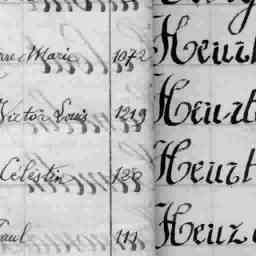 Marie 1072 Heurt
Victor Louis 1219 Heurt
Célestin 120 Heurt
Paul 111